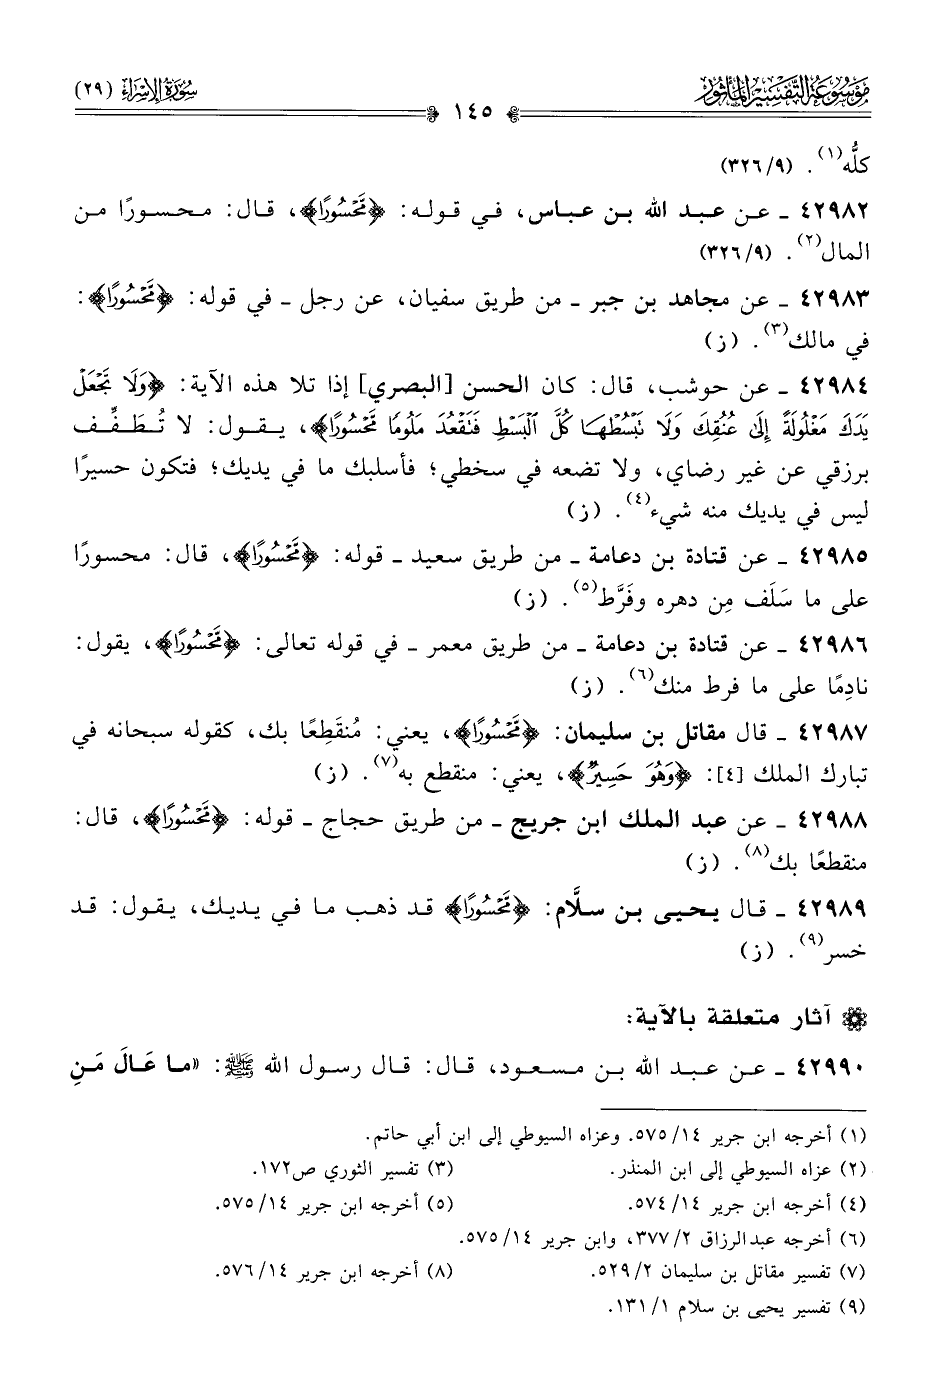 مَوْسُوعَةُ التَّفْسِيرِ المَأْثُورِ
١٤٥
سُورَةُ الإِسْرَاءِ (٢٩)
كلُّه(١). (٣٢٦/٩)
٤٢٩٨٢ ـ عن عبد الله بن عباس، في قوله: ﴿مَّحْسُورًا﴾، قال: محسورًا من
المال(٢). (٣٢٦/٩)
٤٢٩٨٣ ـ عن مجاهد بن جبر ـ من طريق سفيان، عن رجل ـ في قوله: ﴿مَّحْسُورًا﴾:
في مالك(٣). (ز)
٤٢٩٨٤ ـ عن حوشب، قال: كان الحسن [البصري] إذا تلا هذه الآية: ﴿وَلَا تَجْعَلْ
يَدَكَ مَغْلُولَةً إِلَىٰ عُنُقِكَ وَلَا تَبْسُطْهَا كُلَّ الْبَسْطِ فَتَقْعُدَ مَلُومًا مَّحْسُورًا﴾، يقول: لا تُطَفِّف
برزقي عن غير رضاي، ولا تضعه في سخطي؛ فأسلبك ما في يديك؛ فتكون حسيرًا
ليس في يديك منه شيء(٤). (ز)
٤٢٩٨٥ ـ عن قتادة بن دعامة ـ من طريق سعيد ـ قوله: ﴿مَّحْسُورًا﴾، قال: محسورًا
على ما سَلَف مِن دهره وفَرَّط(٥). (ز)
٤٢٩٨٦ ـ عن قتادة بن دعامة ـ من طريق معمر ـ في قوله تعالى: ﴿مَّحْسُورًا﴾، يقول:
نادِمًا على ما فرط منك(٦). (ز)
٤٢٩٨٧ ـ قال مقاتل بن سليمان: ﴿مَّحْسُورًا﴾، يعني: مُنقَطِعًا بك، كقوله سبحانه في
تبارك الملك [٤]: ﴿وَهُوَ حَسِيرٌ﴾، يعني: منقطع به(٧). (ز)
٤٢٩٨٨ ـ عن عبد الملك ابن جريج ـ من طريق حجاج ـ قوله: ﴿مَّحْسُورًا﴾، قال:
منقطعًا بك(٨). (ز)
٤٢٩٨٩ ـ قال يحيى بن سلَّام: ﴿مَّحْسُورًا﴾ قد ذهب ما في يديك، يقول: قد
خسر(٩). (ز)
آثار متعلقة بالآية:
٤٢٩٩٠ ـ عن عبد الله بن مسعود، قال: قال رسول الله ﷺ: «ما عَالَ مَنِ
(١) أخرجه ابن جرير ١٤/ ٥٧٥. وعزاه السيوطي إلى ابن أبي حاتم.
(٢) عزاه السيوطي إلى ابن المنذر. (٣) تفسير الثوري ص١٧٢.
(٤) أخرجه ابن جرير ١٤/ ٥٧٤. (٥) أخرجه ابن جرير ١٤/ ٥٧٥.
(٦) أخرجه عبدالرزاق ٢/ ٣٧٧، وابن جرير ١٤/ ٥٧٥.
(٧) تفسير مقاتل بن سليمان ٢/ ٥٢٩. (٨) أخرجه ابن جرير ١٤/ ٥٧٦.
(٩) تفسير يحيى بن سلام ١/ ١٣١.